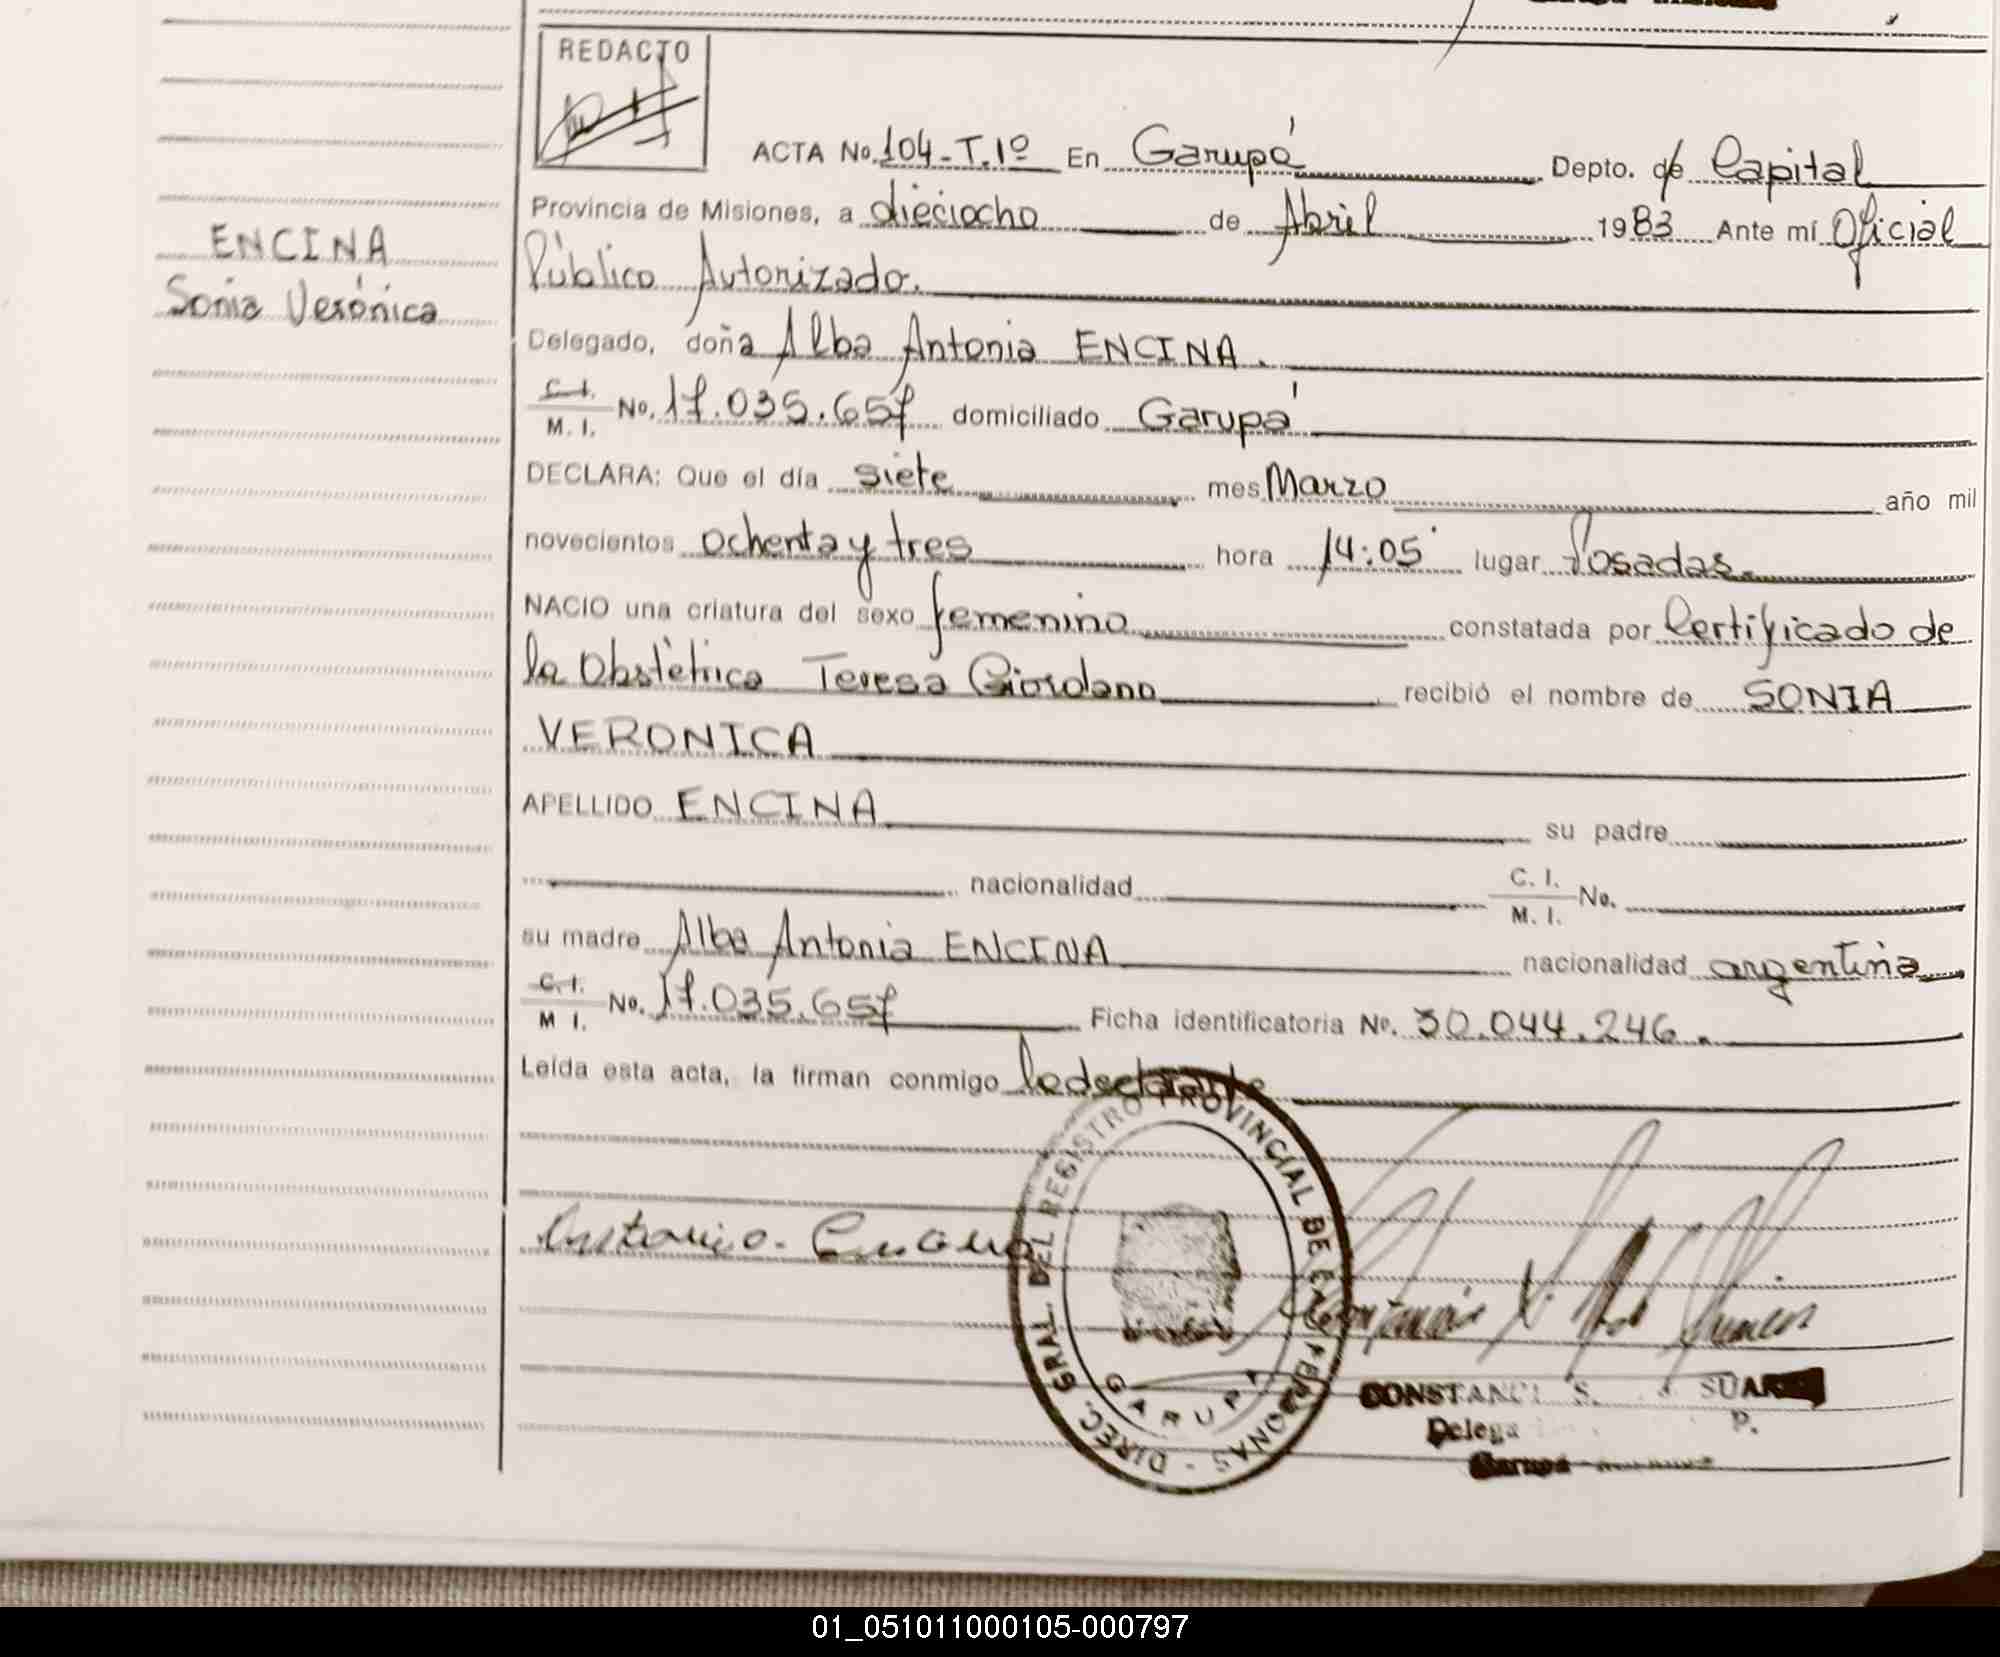 REDACTO
ACTA No. 104-T.1º En Garupá Depto. de Capital
Provincia de Misiones, a dieciocho de Abril 1983 Ante mí Oficial
Público Autorizado.
ENCINA
Sonia Verónica
Delegado, doña Alba Antonia ENCINA.
C.I.
M. I. No. 17.035.657 domiciliado Garupá
DECLARA: Que el día siete mes Marzo año mil
novecientos ochenta y tres hora 14:05 lugar Posadas.
NACIO una criatura del sexo femenino constatada por Certificado de
la Obstétrica Teresa Giordano recibió el nombre de SONIA
VERONICA
APELLIDO ENCINA su padre
nacionalidad C. I.
M. I. No.
su madre Alba Antonia ENCINA nacionalidad argentina
C.I.
M I. No. 17.035.657 Ficha identificatoria No. 30.044.246.
Leída esta acta, la firman conmigo la declarante
DIREC. GRAL. DEL REGISTRO PROVINCIAL DE LAS PERSONAS -
GARUPA
CONSTANCI S. SUAR
Delega P.
Garupá
01_051011000105-000797